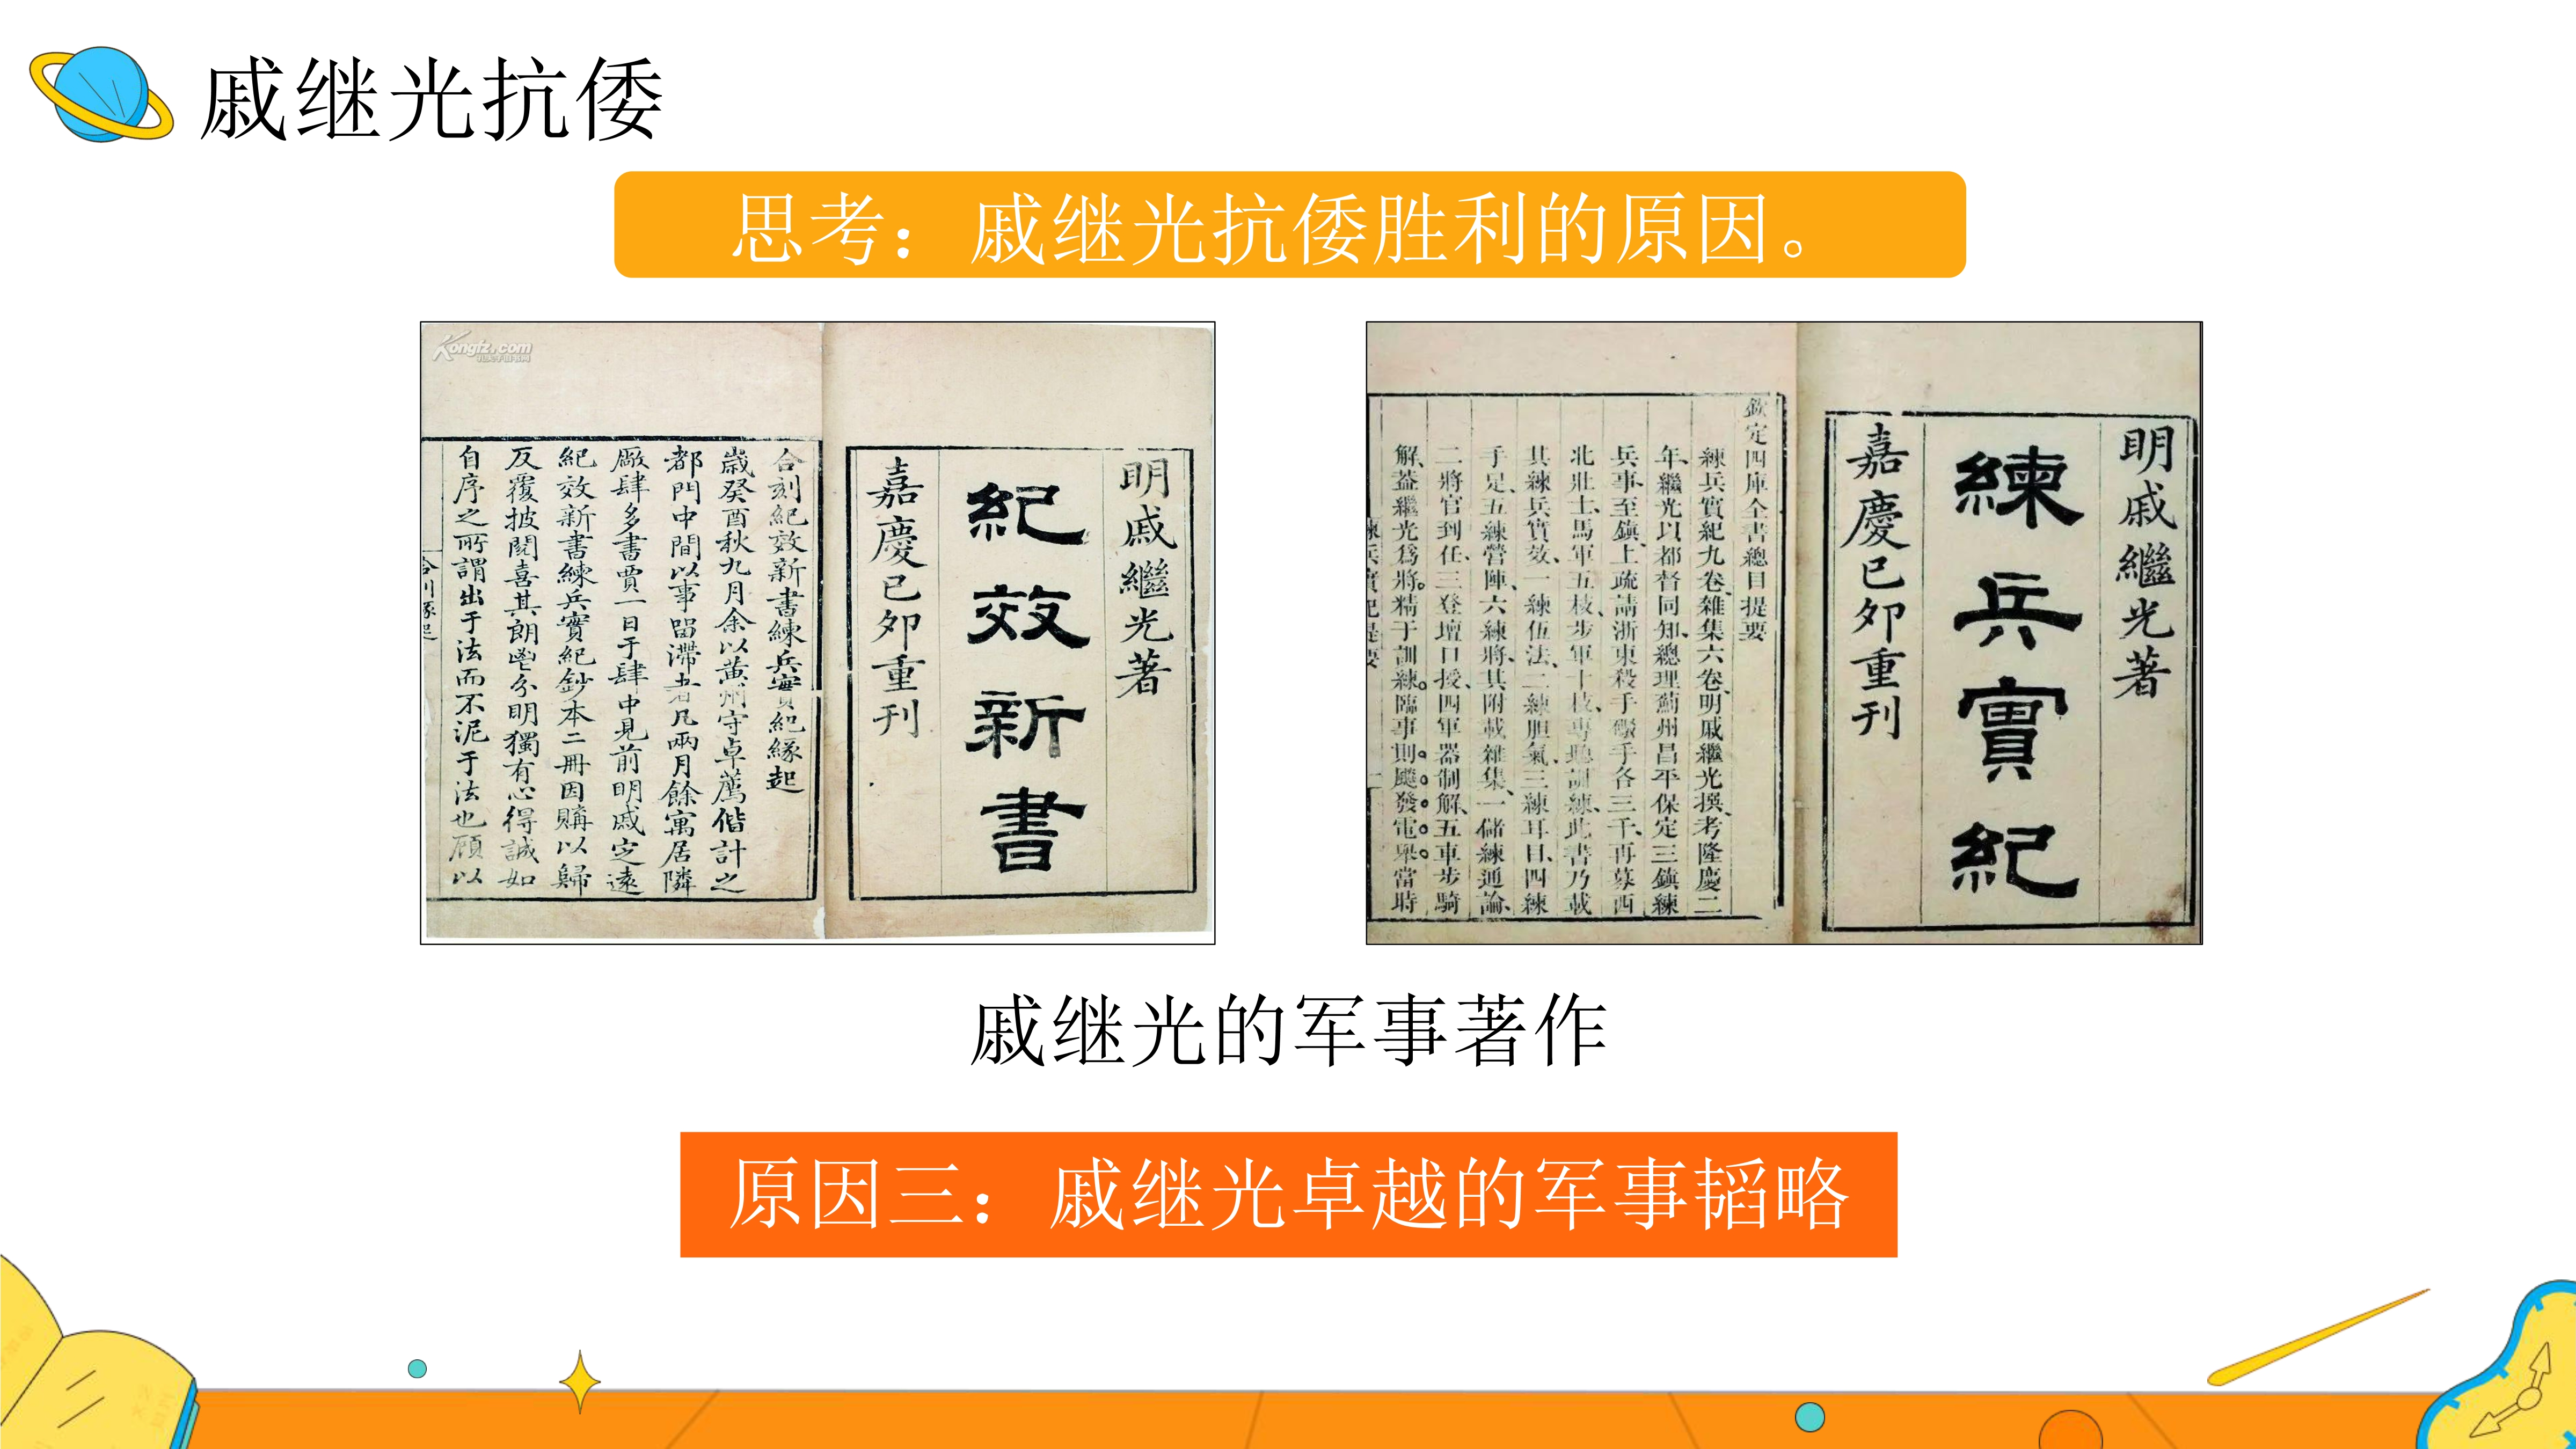 戚继光抗倭
思考：戚继光抗倭胜利的原因。
Kongfz.com
明戚繼光著
紀效新書
嘉慶已夘重刊
合刻紀效新書練兵實紀緣起
歲癸酉秋九月余以黃州守卓薦偕計之
都門中間以事留滯者凡兩月餘寓居隣
廠肆多書賈一日于肆中見前明戚定遠
紀效新書練兵實紀鈔本二冊因購以歸
反覆披閱喜其朗鬯分明獨有心得誠如
自序之所謂出于法而不泥于法也顧以
明戚繼光著
練兵實紀
嘉慶已夘重刊
欽定四庫全書總目提要
練兵實紀九卷雜集六卷明戚繼光撰考隆慶二
年繼光以都督同知總理薊州昌平保定三鎮練
兵事至鎮上疏請浙東殺手礮手各三千再募西
北壯士馬軍五枝步軍十枝專聽訓練此書乃載
其練兵實效一練伍法二練胆氣三練耳目四練
手足五練營陣六練將其附載雜集一儲練通論
二將官到任三登壇口授四軍器制解五車步騎
解蓋繼光爲將精于訓練臨事則飈發電舉當時
戚继光的军事著作
原因三：戚继光卓越的军事韬略